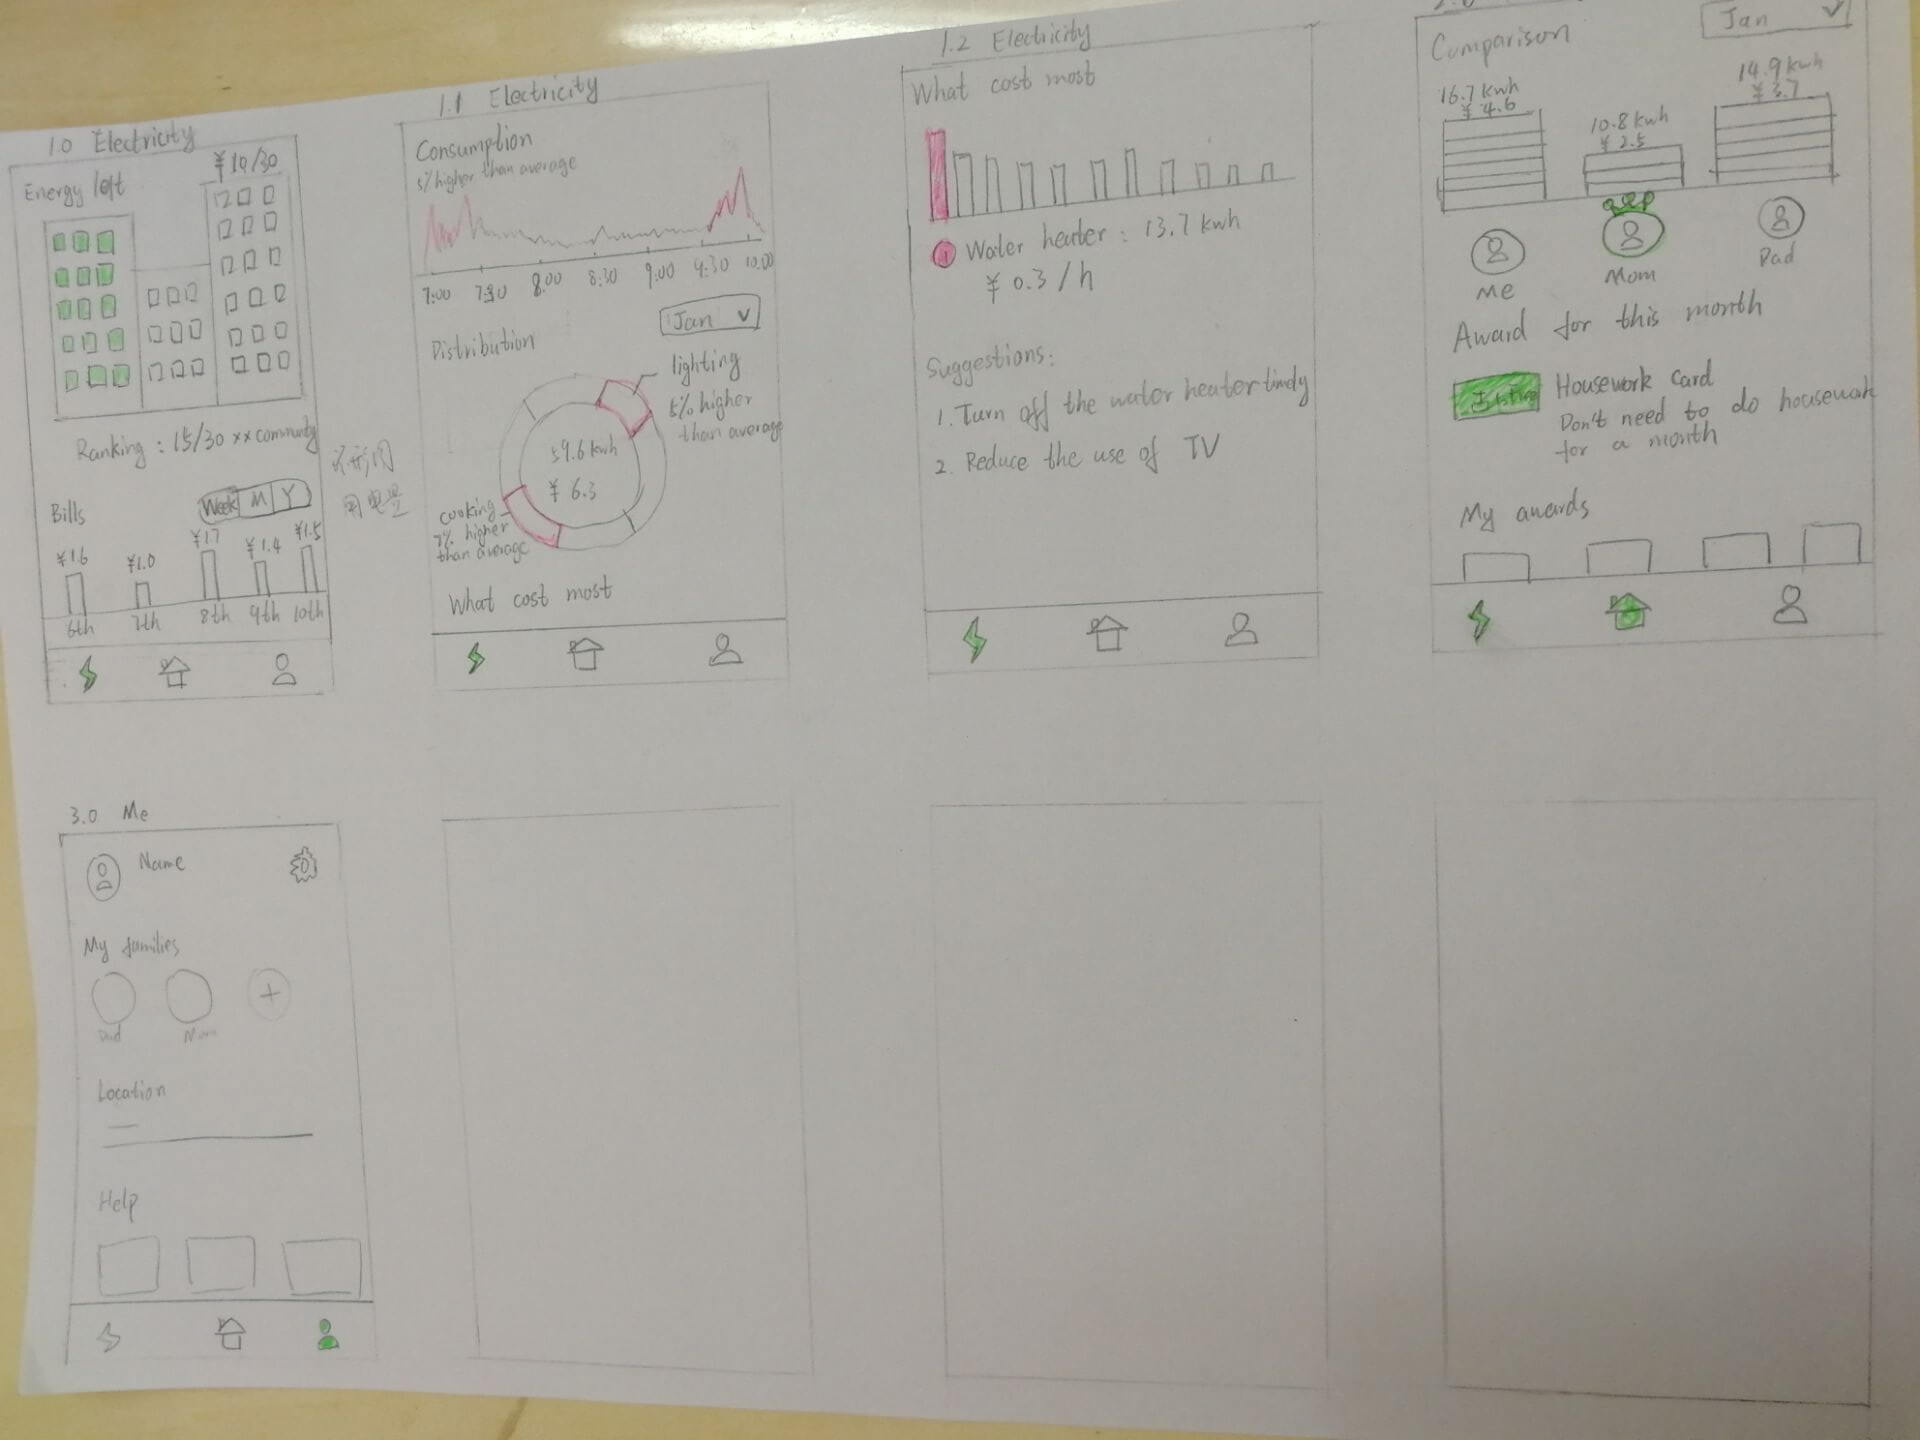 1.0 Electricity
Energy left
¥10/30
Ranking : 15/30 xx community
Bills
Week M Y
¥1.6
¥1.0
¥1.7
¥1.4
¥1.5
6th
7th
8th
9th
10th
用电量
1.1 Electricity
Consumption
5% higher than average
7:00 7:30 8:00 8:30 9:00 9:30 10:00
Jan
Distribution
lighting
5% higher
than average
59.6 kwh
¥ 6.3
cooking
7% higher
than average
What cost most
1.2 Electricity
What cost most
1 Water heater : 13.7 kwh
¥ 0.3 / h
Suggestions:
1. Turn off the water heater timely
2. Reduce the use of TV
Comparison
Jan
16.7 kwh
¥ 4.6
10.8 kwh
¥ 2.5
14.9 kwh
¥ 3.7
Me
Mom
Dad
Award for this month
Housework card
Don't need to do housework
for a month
My awards
3.0 Me
Name
My families
Dad
Mom
Location
Help